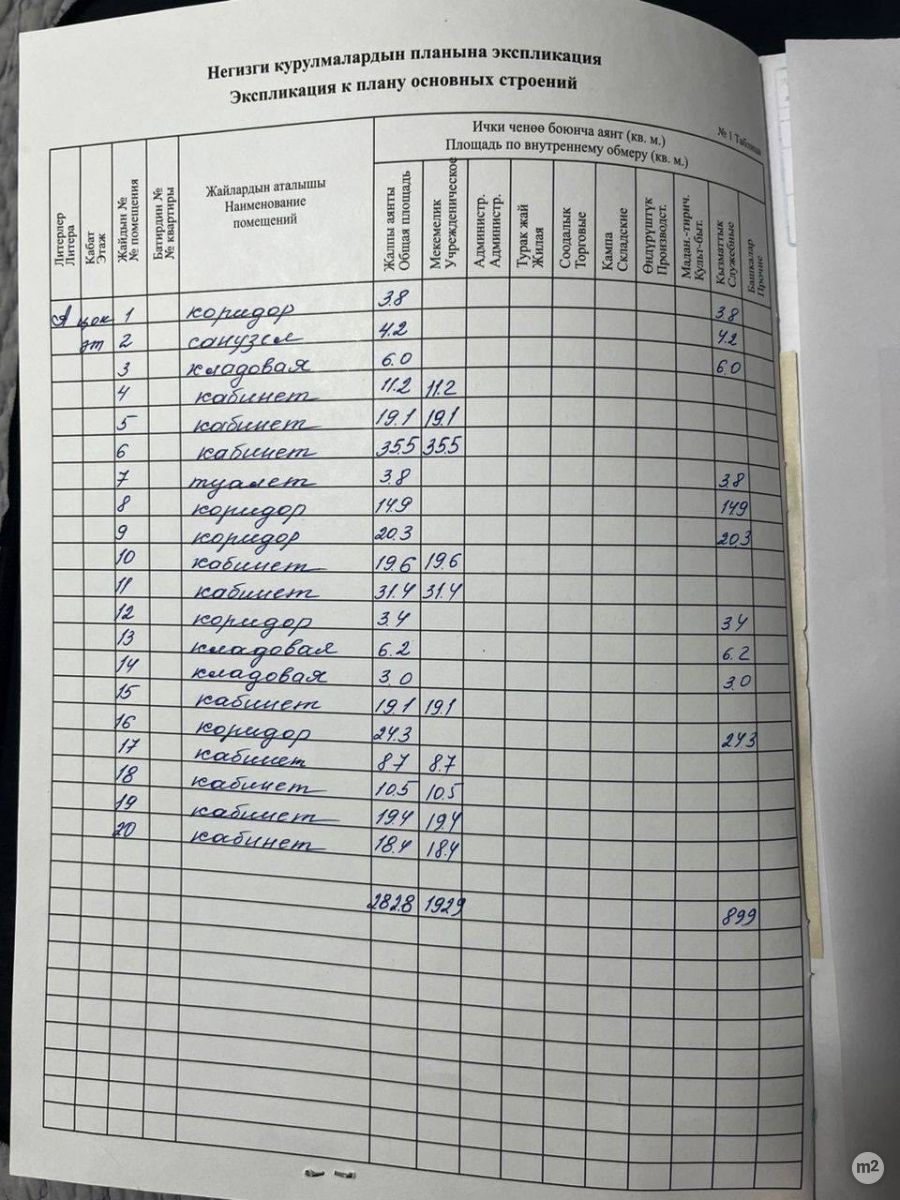 Негизги курулмалардын планына экспликация
Экспликация к плану основных строений
№ 1 Таблица
Ички ченөө боюнча аянт (кв. м.)
Площадь по внутреннему обмеру (кв. м.)
Литерлер Литера
Кабат Этаж
Жайдын № № помещения
Батирдин № № квартиры
Жайлардын аталышы
Наименование
помещений
Жалпы аянты Общая площадь
Мекемелик Учрежденическое
Администр. Администр.
Турак жай Жилая
Соодалык Торговые
Кампа Складские
Өндүрүштүк Производст.
Мадан.-тирич. Культ-быт.
Кызматтык Служебные
Башкалар Прочие
А цок 1 коридор 3.8 3.8
эт 2 санузел 4.2 4.2
3 кладовая 6.0 6.0
4 кабинет 11.2 11.2
5 кабинет 19.1 19.1
6 кабинет 35.5 35.5
7 туалет 3.8 3.8
8 коридор 14.9 14.9
9 коридор 20.3 20.3
10 кабинет 19.6 19.6
11 кабинет 31.4 31.4
12 коридор 3.4 3.4
13 кладовая 6.2 6.2
14 кладовая 3.0 3.0
15 кабинет 19.1 19.1
16 коридор 24.3 24.3
17 кабинет 8.7 8.7
18 кабинет 10.5 10.5
19 кабинет 19.4 19.4
20 кабинет 18.4 18.4
282.8 192.9 89.9
m2